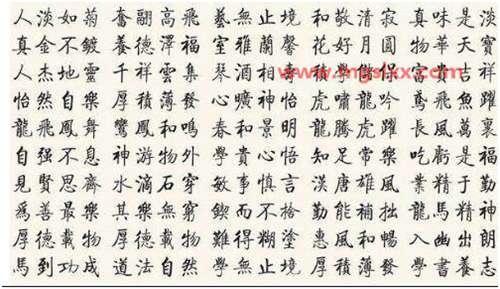 人淡如菊 奮翮高飛 藝無止境 和敬清寂 真味是淡
真金不鍍 養德澤福 室雅蘭馨 花好月圓 物華天寶
人杰地靈 千祥雲集 琴 酒 吉祥
怡然自樂 厚積薄發 心曠神怡 虎嘯龍吟 鳶飛魚躍
龍飛鳳舞 鸞鳳和鳴 春和景明 龍騰虎躍 長風萬裏
自强不息 神游物外 學貴心悟 知足常樂 吃虧是福
見賢思齊 水滴石穿 敏事慎言 漢唐雄風 業精于勤
爲善最樂 其樂無窮 鍥而不捨 勤能補拙 龍馬精神
厚德載物 厚德載物 難得糊塗 惠風和暢 入幽出朗
馬到功成 道法自然 學無止境 厚積薄發 學書養志